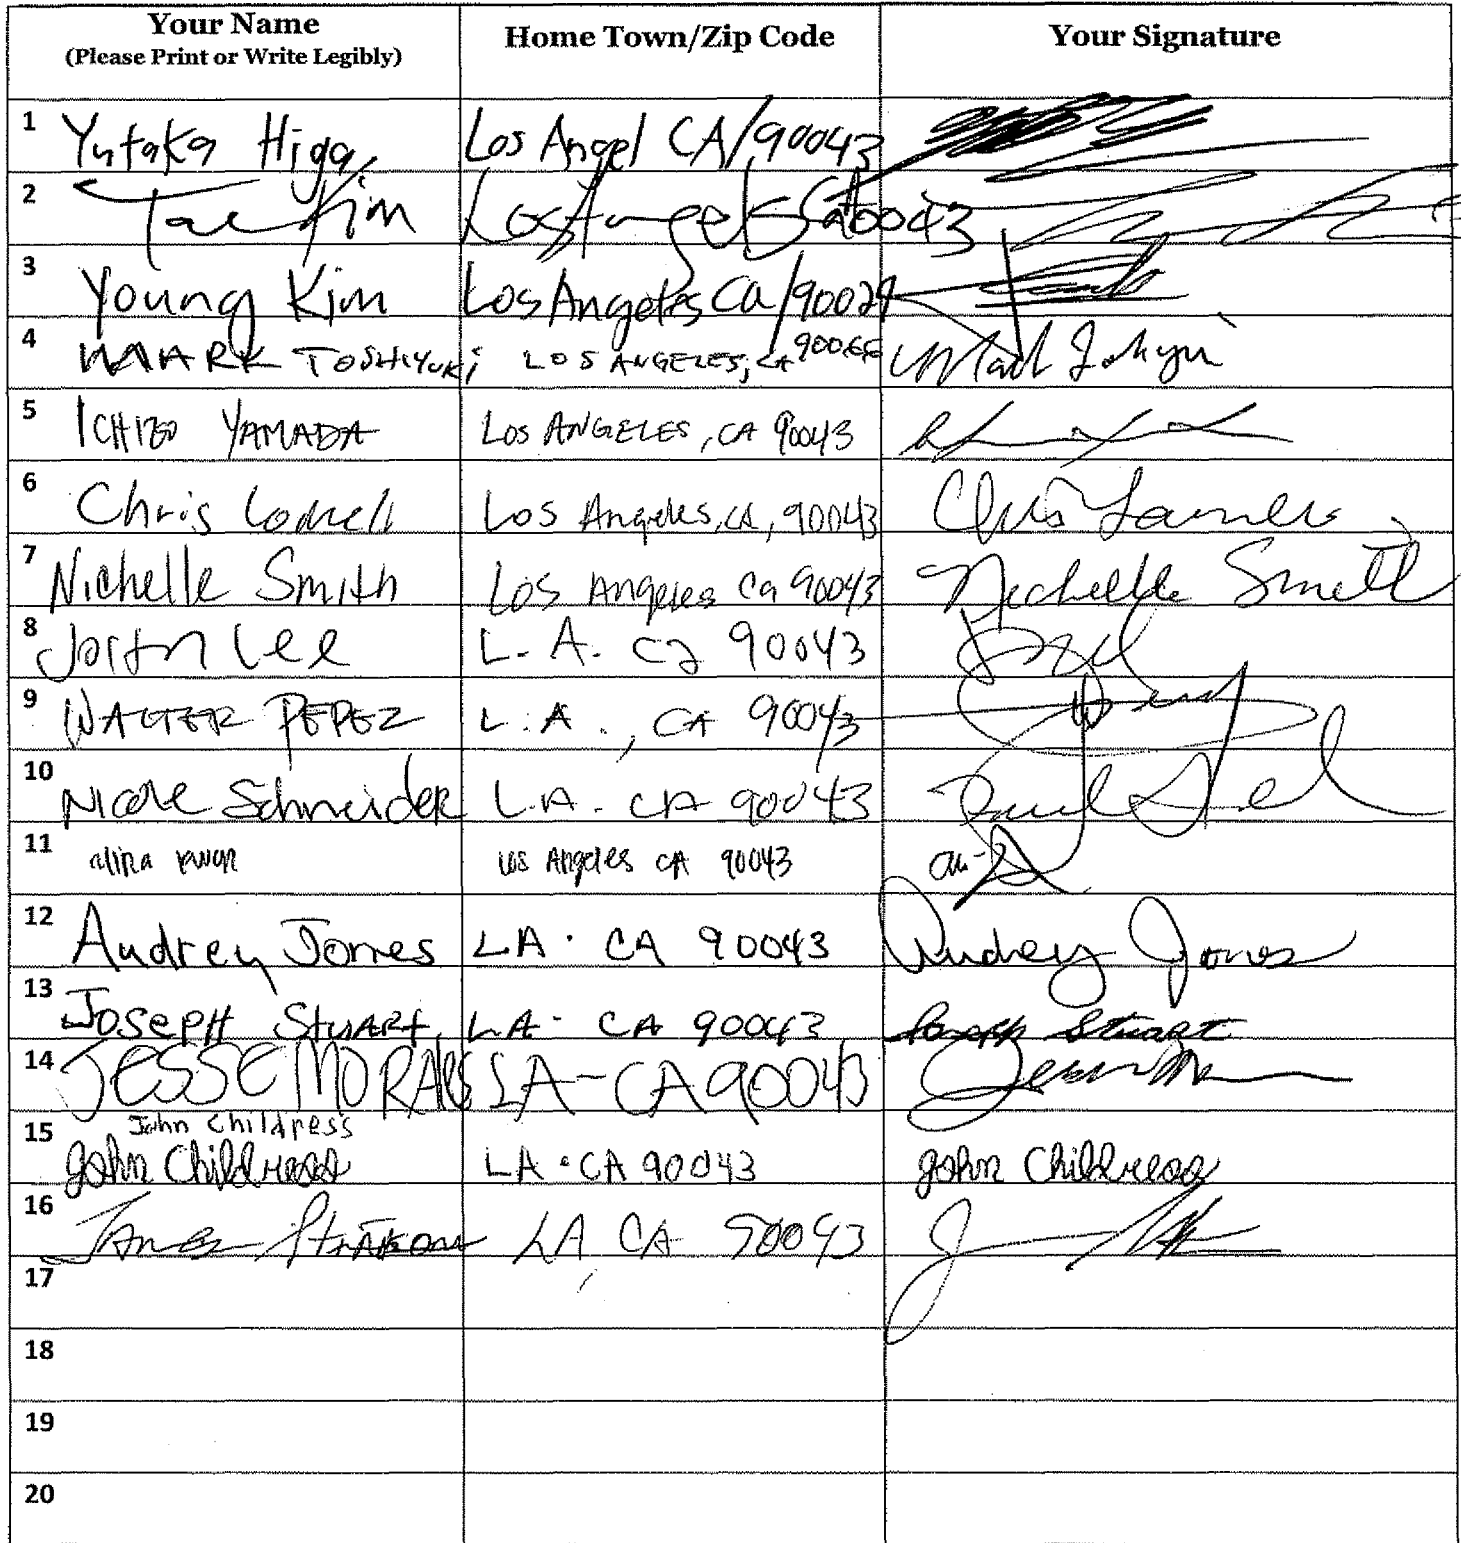 Your Name Home Town/Zip Code Your Signature
(Please Print or Write Legibly)
1 Yutaka Higa Los Angel CA/90043
2 Tae Kim Los Angels Ca 90043
3 Young Kim Los Angeles Ca/90029
4 MARK TOSHIYUKI LOS ANGELES, CA 90066
5 ICHIZO YAMADA LOS ANGELES, CA 90043
6 Chris Los Angeles, CA, 90043 Chris
7 Nichelle Smith Los Angeles Ca 90043 Nichelle Smith
8 Lee L.A. Ca 90043
9 WALTER PEREZ L.A., CA 90043
10 Nicole Schneider L.A. CA 90043
11 alina kwon Los Angeles CA 90043
12 Audrey Jones LA. CA 90043 Audrey Jones
13 JOSEPH STUART LA. CA 90043 Joseph Stuart
14 JESSE MORALES LA-CA 90043
15 John Childress
John Childress LA. CA 90043 John Childress
16 James LA, CA 90043
17
18
19
20